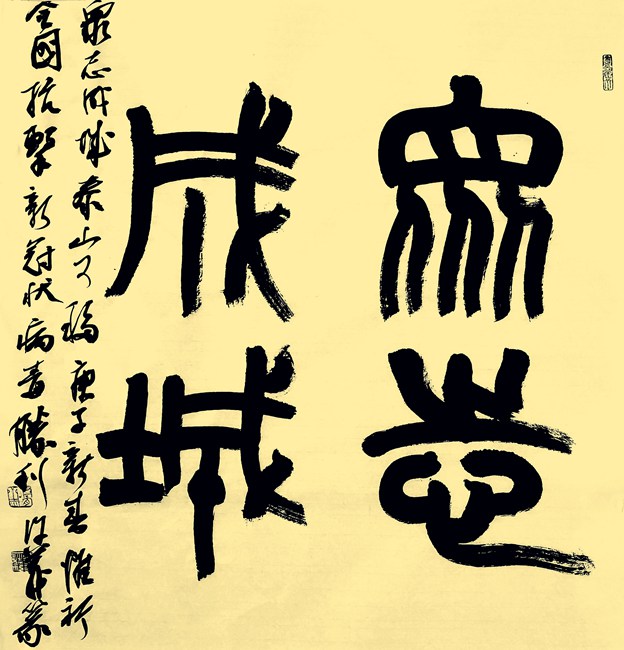 眾志
成城
眾志成城泰山可移庚子新春惟祈
全國抗擊新冠狀病毒勝利篆